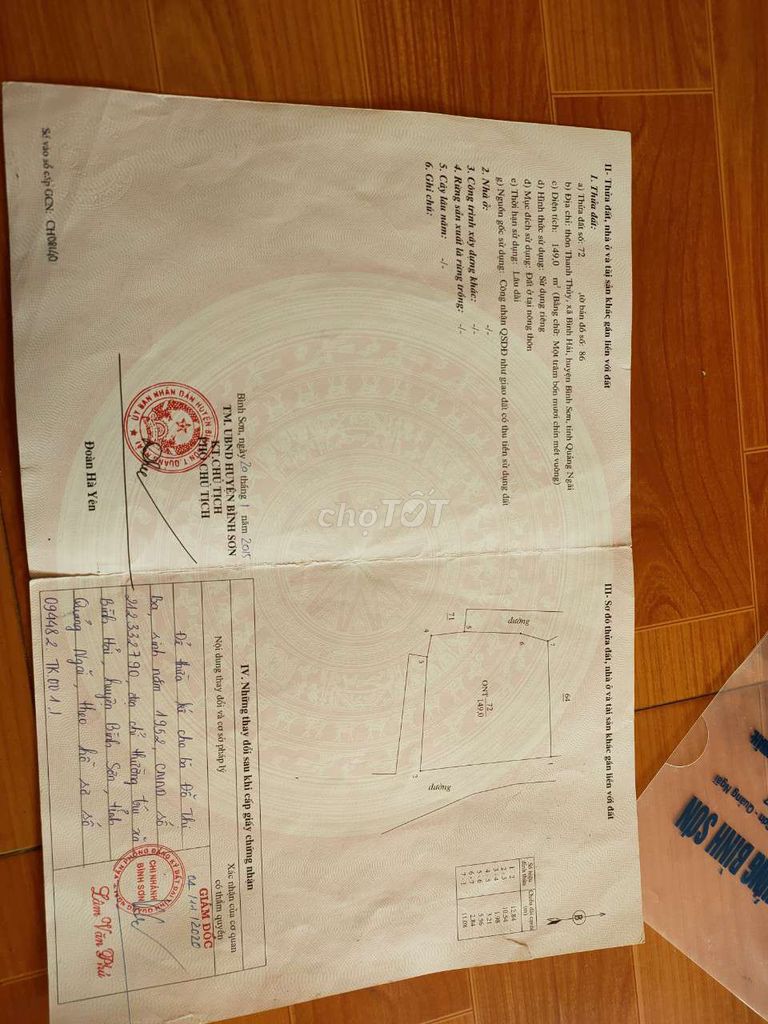 II- Thửa đất, nhà ở và tài sản khác gắn liền với đất
1. Thửa đất:
a) Thửa đất số: 72 ,tờ bản đồ số: 86
b) Địa chỉ: thôn Thanh Thủy, xã Bình Hải, huyện Bình Sơn, tỉnh Quảng Ngãi
c) Diện tích: 149,0 m² (Bằng chữ: Một trăm bốn mươi chín mét vuông)
d) Hình thức sử dụng: Sử dụng riêng
đ) Mục đích sử dụng: Đất ở tại nông thôn
e) Thời hạn sử dụng: Lâu dài
g) Nguồn gốc sử dụng: Công nhận QSDĐ như giao đất có thu tiền sử dụng đất
2. Nhà ở: -/-
3. Công trình xây dựng khác: -/-
4. Rừng sản xuất là rừng trồng: -/-
5. Cây lâu năm: -/-
6. Ghi chú:
Bình Sơn, ngày 20 tháng 1 năm 2015
TM. UBND HUYỆN BÌNH SƠN
KT.CHỦ TỊCH
PHÓ CHỦ TỊCH
ỦY BAN NHÂN DÂN HUYỆN BÌNH SƠN T.QUẢNG NGÃI
Đoàn Hà Yên
Số vào sổ cấp GCN: CH08140
III- Sơ đồ thửa đất, nhà ở và tài sản khác gắn liền với đất
B
64
đường
71
7
6
5
4
3
2
1
ONT 72
149,0
đường
Số hiệu đỉnh thửa
Chiều dài cạnh (m)
1 - 2 12.84
2 - 3 10.54
3 - 4 1.98
4 - 5 3.21
5 - 6 5.96
6 - 7 2.84
7 - 1 11.08
IV. Những thay đổi sau khi cấp giấy chứng nhận
Nội dung thay đổi và cơ sở pháp lý
Xác nhận của cơ quan
có thẩm quyền
Để thừa kế cho bà Đỗ Thị
Ba, sinh năm 1952, CMND số
212332790, địa chỉ thường trú xã
Bình Hải, huyện Bình Sơn, tỉnh
Quảng Ngãi, theo hồ sơ số
094482.TK.001.1
GIÁM ĐỐC
CHI NHÁNH
BÌNH SƠN
Lâm Văn Phú
chợTỐT
BÌNH SƠN
Quảng Ngãi